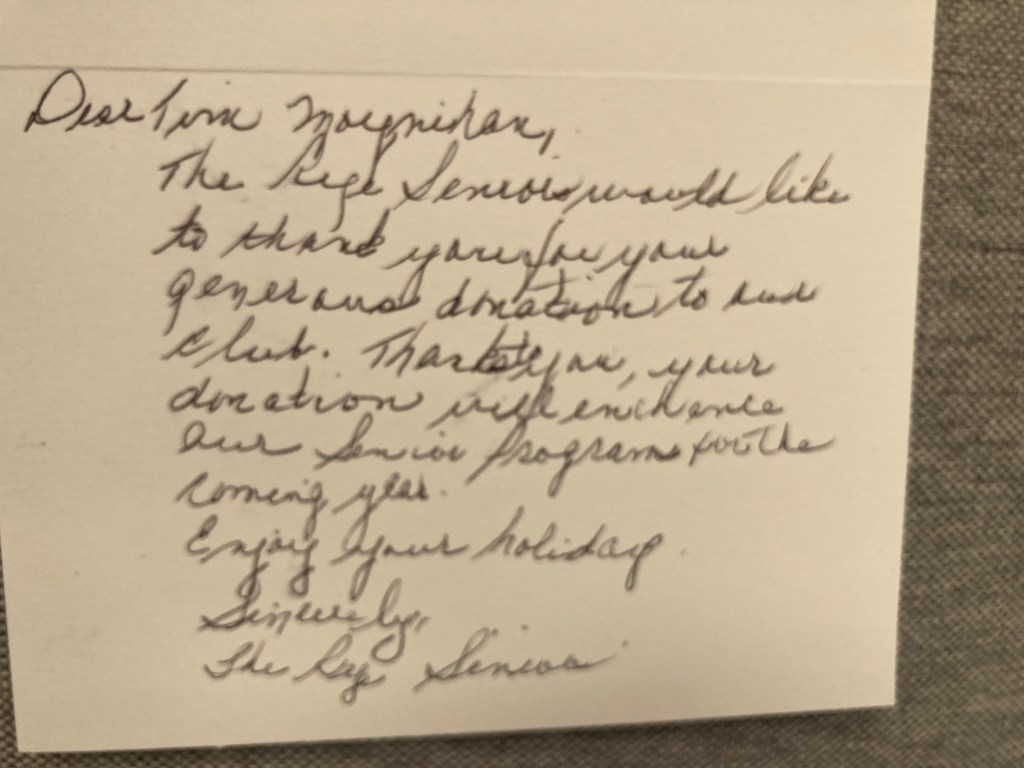 Dear Tim Moynihan,
The Rege Seniors would like
to thank you for your
generous donation to our
club. Thank you, your
donation will enchance
our Senior Programs for the
coming year.
Enjoy your holiday.
Sincerely,
The Senior